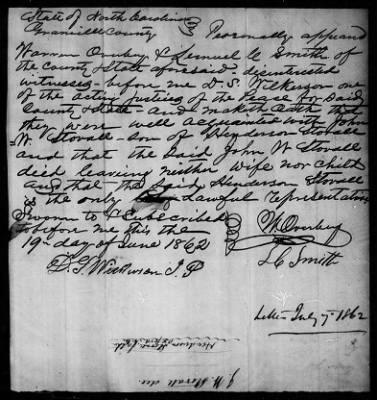 State of North Carolina
Granville County } Personally appeard
Warren Overbey & Lemuel C Smith of
the county & State aforesaid disinterested
witnesses before me D. S. Wilkerson one
of the acting justices of the peace for said
County & State and maketh oath that
they were well acquainted with John
W. Stovall son of Henderson Stovall
and that the said John W Stovall
died leaving neither wife nor child
and that the said Henderson Stovall
is the only lawful representative
Sworn to & Subscribed
to before me this the
19th day of June 1862
W Overbey
D. S. Wilkerson J. P
L C Smith
July 7 1862
Henderson Stovall
J W Stovall dec.